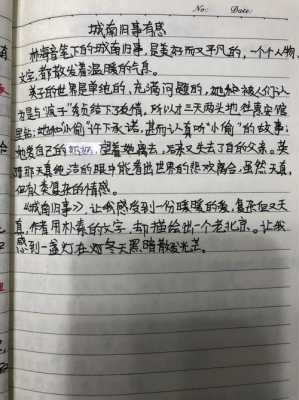 No:
Date:
城南旧事有感
林海音笔下的城南旧事,是美好而又平凡的,一个个人物,
文字,都散发着温暖的气息。
英子的世界是单纯的,充满问题的,她和被人们认
为是与"疯子"秀贞结下了友情,所以才三天两头地往惠安馆
里钻;她和小偷许下承诺,甚而认真听"小偷"的故事;
她爱自己的奶妈,望着她离去,后来又失去了自的父亲。英
那天真纯洁的眼中能看出世界的悲欢离合,虽然天真,
但有复杂的情感。
《城南旧事》,让我感受到一份暖暖的爱,复杂但又天
真,作者用朴素的文字,却描绘出一个老北京。让我
感到一盏灯在冬天黑暗散发光芒。